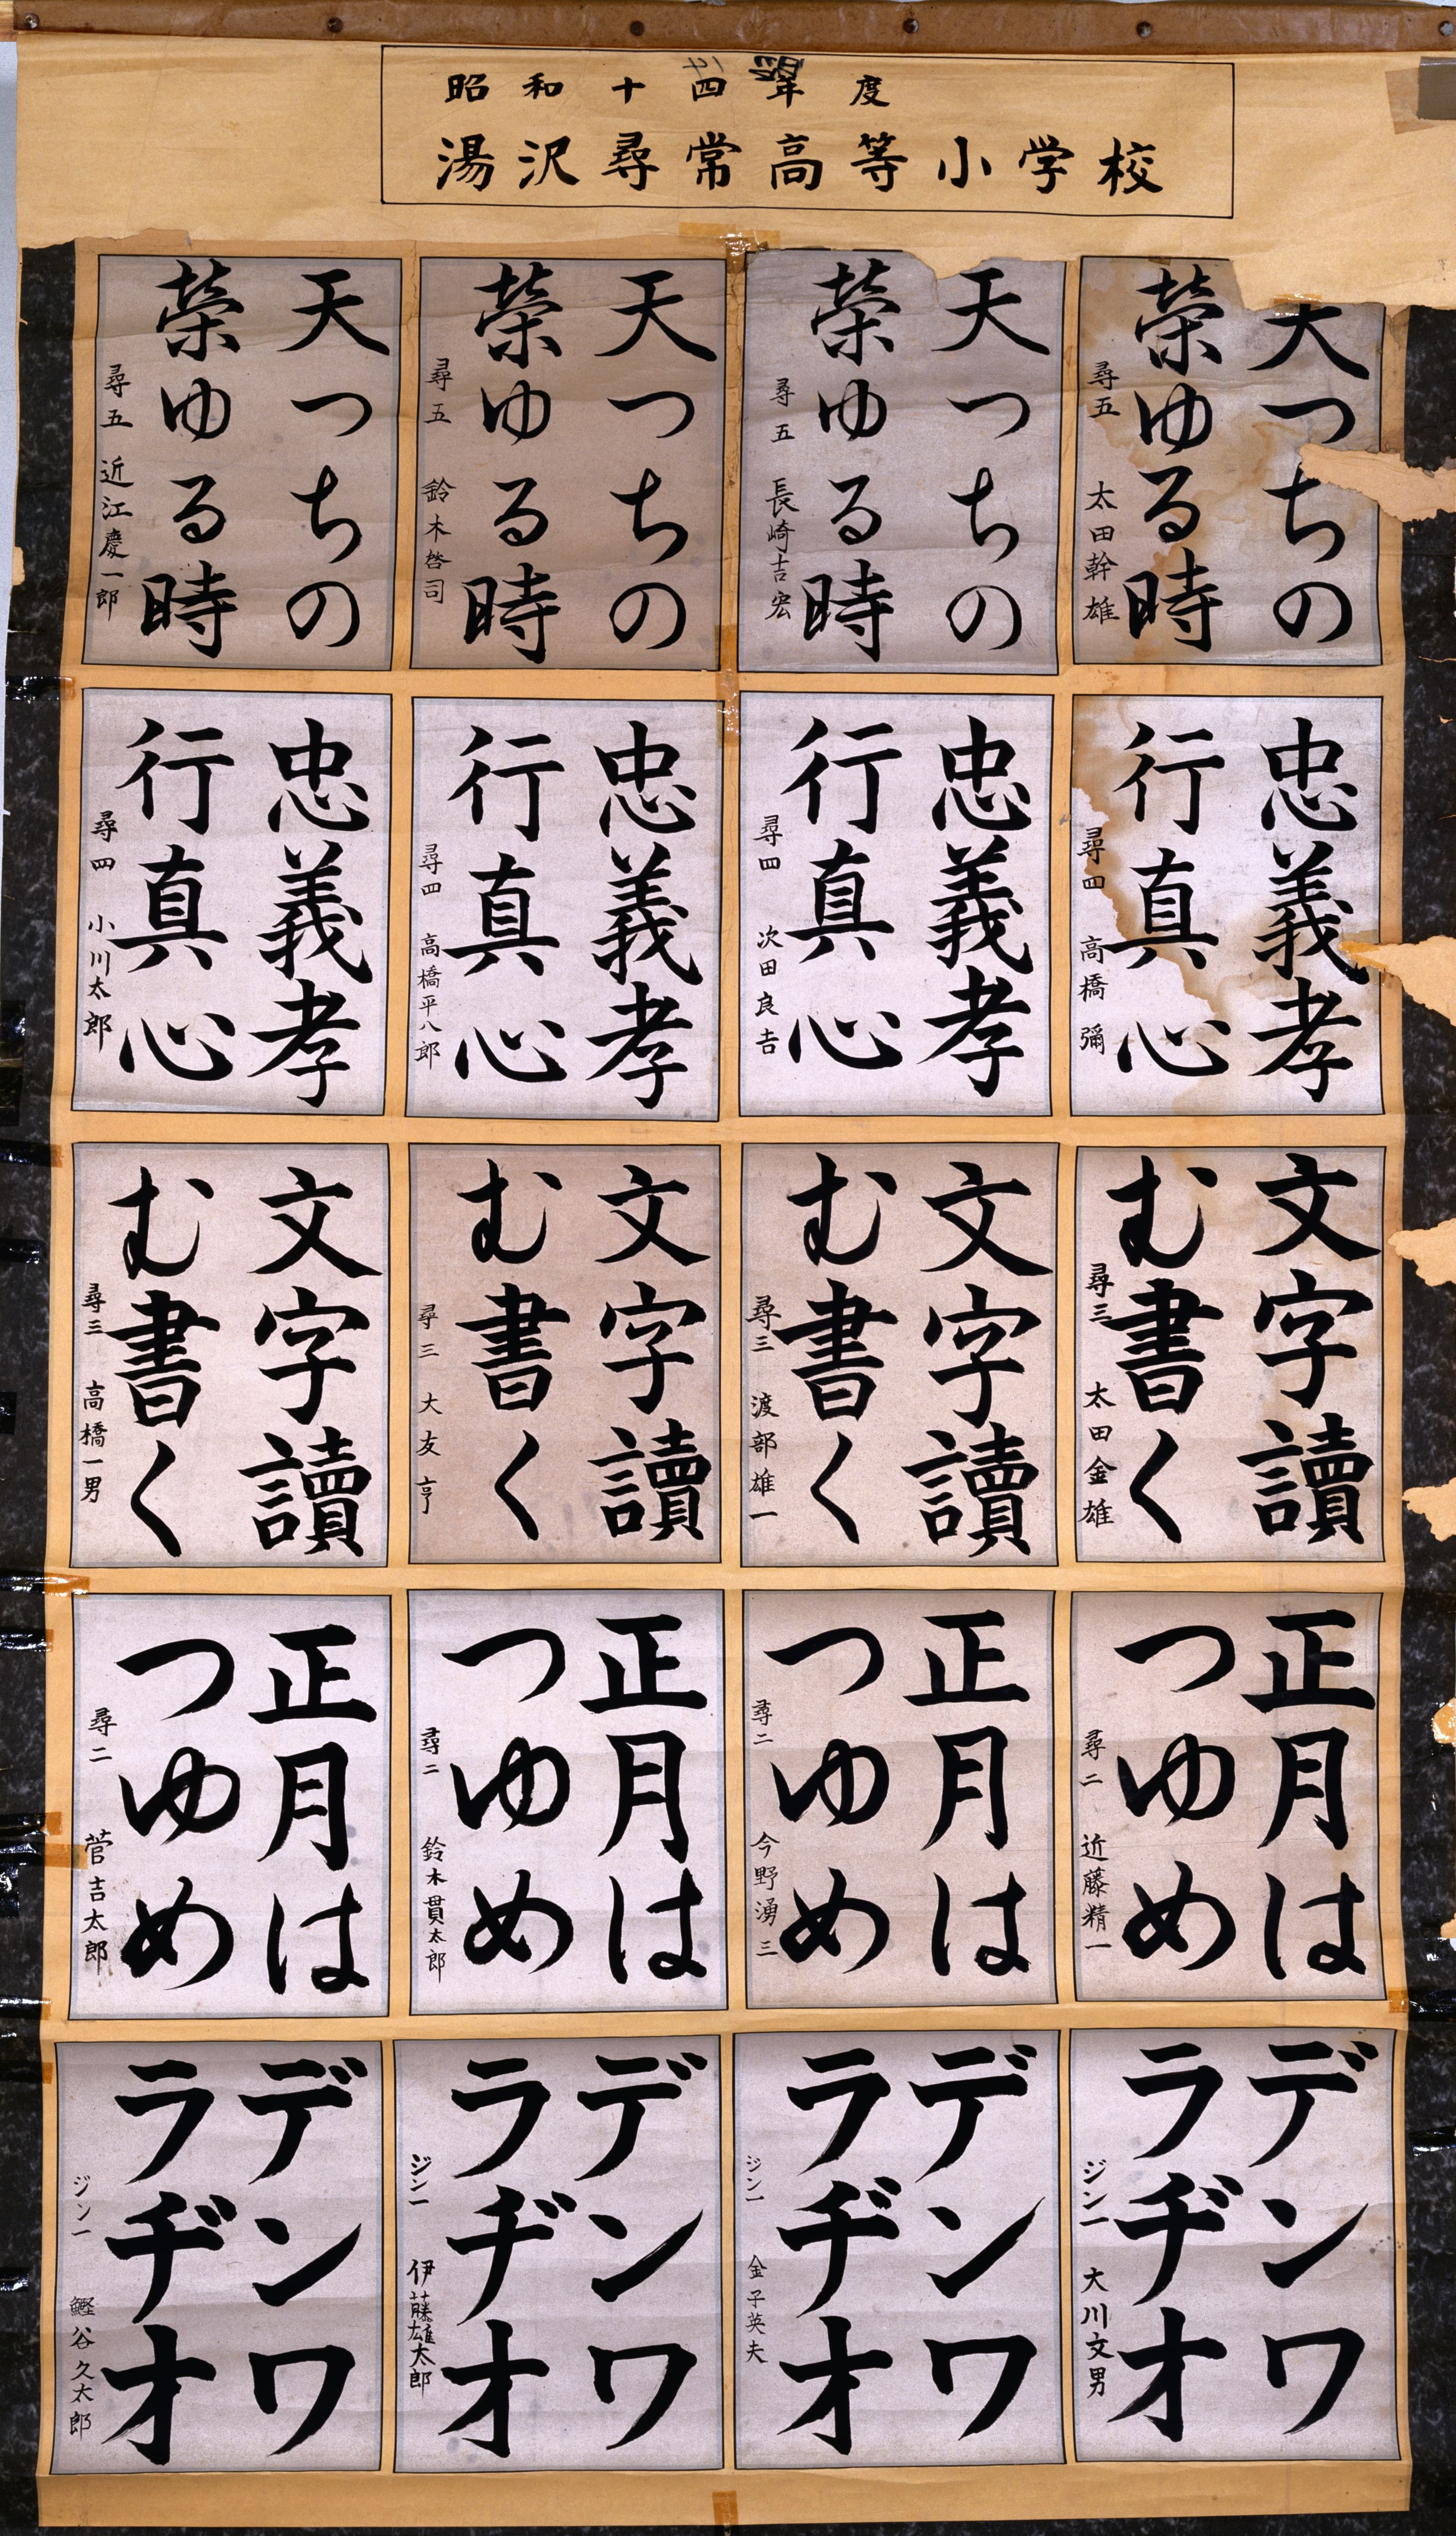 昭和十四年度
湯沢尋常高等小学校
天つちの
榮ゆる時
尋五 太田幹雄
天つちの
榮ゆる時
尋五 長崎吉宏
天つちの
榮ゆる時
尋五 鈴木啓司
天つちの
榮ゆる時
尋五 近江慶一郎
忠義孝
行真心
尋四 高橋彌
忠義孝
行真心
尋四 次田良吉
忠義孝
行真心
尋四 高橋平八郎
忠義孝
行真心
尋四 小川太郎
文字讀
む書く
尋三 太田金雄
文字讀
む書く
尋三 渡部雄一
文字讀
む書く
尋三 大友亨
文字讀
む書く
尋三 高橋一男
正月は
つゆめ
尋二 近藤精一
正月は
つゆめ
尋二 今野湧三
正月は
つゆめ
尋二 鈴木貫太郎
正月は
つゆめ
尋二 菅吉太郎
デンワ
ラヂオ
ジン一 大川文男
デンワ
ラヂオ
ジン一 金子英夫
デンワ
ラヂオ
ジン一 伊藤雄太郎
デンワ
ラヂオ
ジン一 鰹谷久太郎